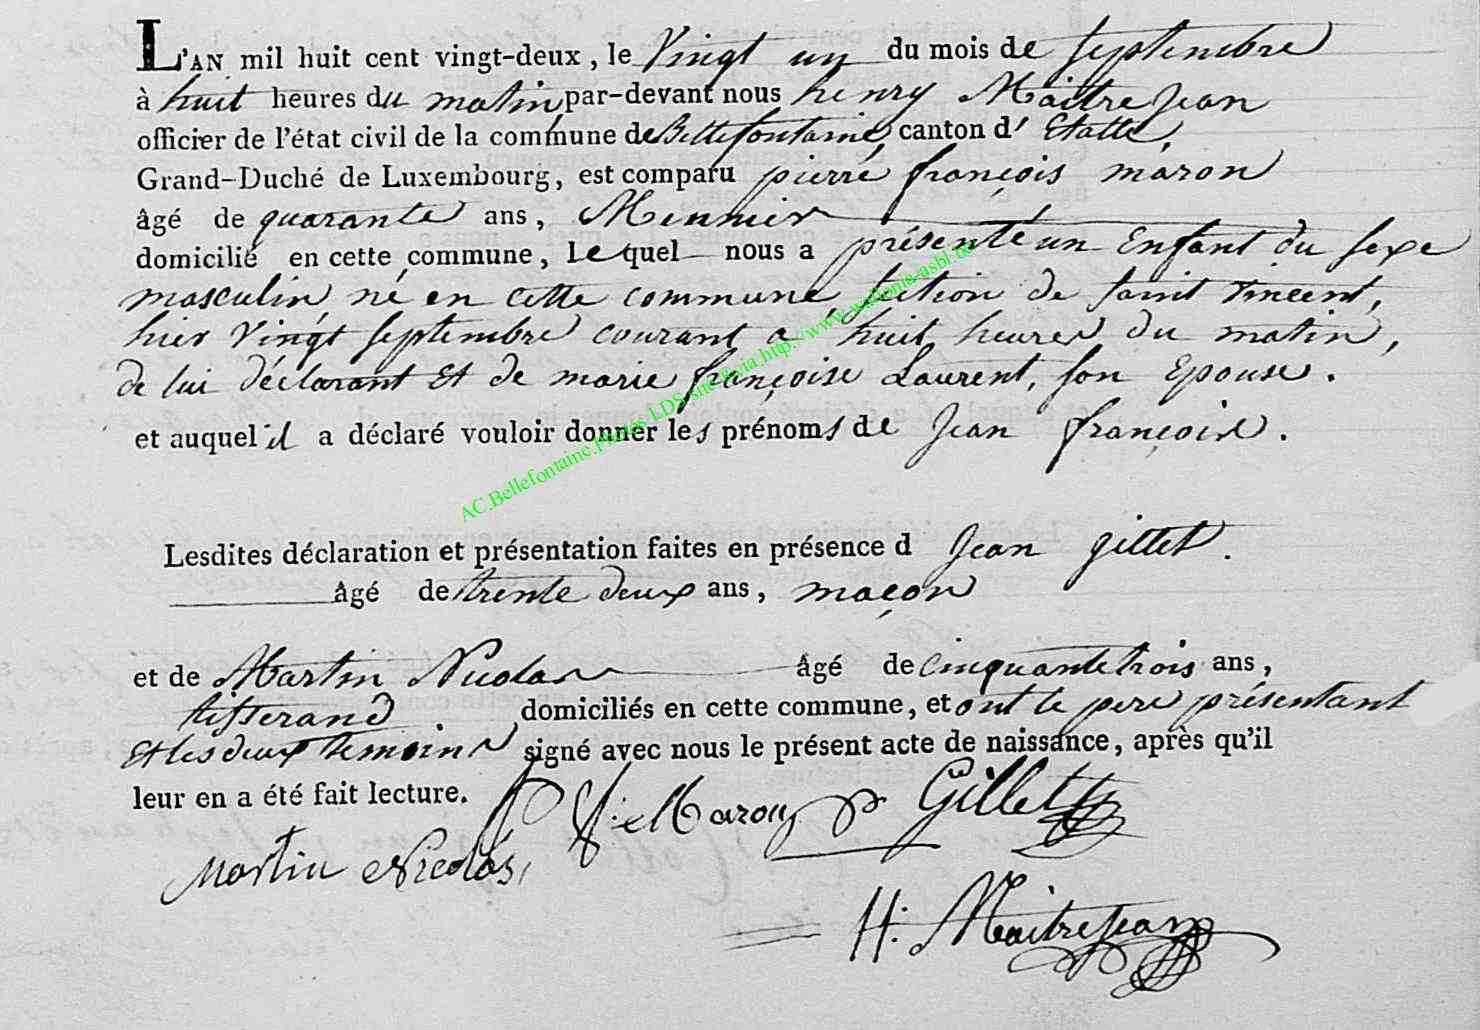 L'AN mil huit cent vingt-deux, le Vingt un du mois de septembre
à huit heures du matin, par-devant nous henry Maitrejean
officier de l'état civil de la commune de Bellefontaine, canton d' Etalle,
Grand-Duché de Luxembourg, est comparu pierre françois maron
âgé de quarante ans, Meunier
domicilié en cette commune, Lequel nous a présenté un Enfant du sexe
masculin, né en cette commune section de saint Vincent,
hier Vingt septembre courant a huit heures du matin,
de lui déclarant Et de marie françoise Laurent, son Epouse.
et auquel il a déclaré vouloir donner les prénoms de Jean françois.
AC.Bellefontaine.Photos LDS site lavia.http://www.wallonia-asbl.be
Lesdites déclaration et présentation faites en présence d Jean gillet.
âgé de trente deux ans, maçon
et de Martin Nicolas âgé de cinquante trois ans,
tisserand. domiciliés en cette commune, et ont le pere présentant
Et les deux temoins signé avec nous le présent acte de naissance, après qu'il
leur en a été fait lecture. P f: Maron Gillet
Martin Nicolas,
H: Maitrejean